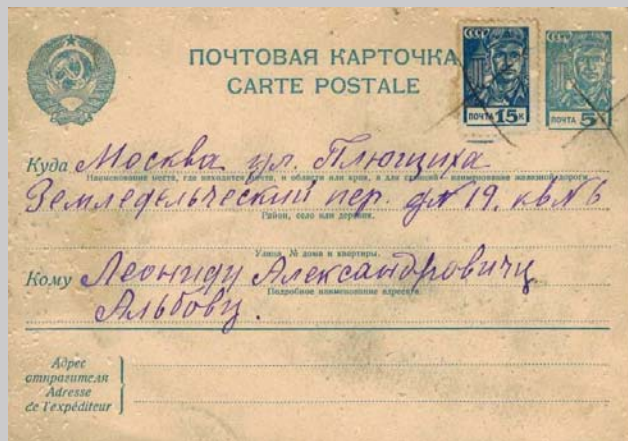 ПОЧТОВАЯ КАРТОЧКА
CARTE POSTALE
СССР
ПОЧТА 15 К
СССР
ПОЧТА 5 К
Куда Москва ул. Плющиха
Наименование места, где находится почта, и области или края, а для станций – наименование железной дороги
Земледельческий пер. д№ 19. кв№ 6
Район, село или деревня.
Улица, № дома и квартиры.
Кому Леониду Александровичу
Подробное наименование адресата.
Альбову.
Адрес
отправителя
Adresse
de l'expéditeur